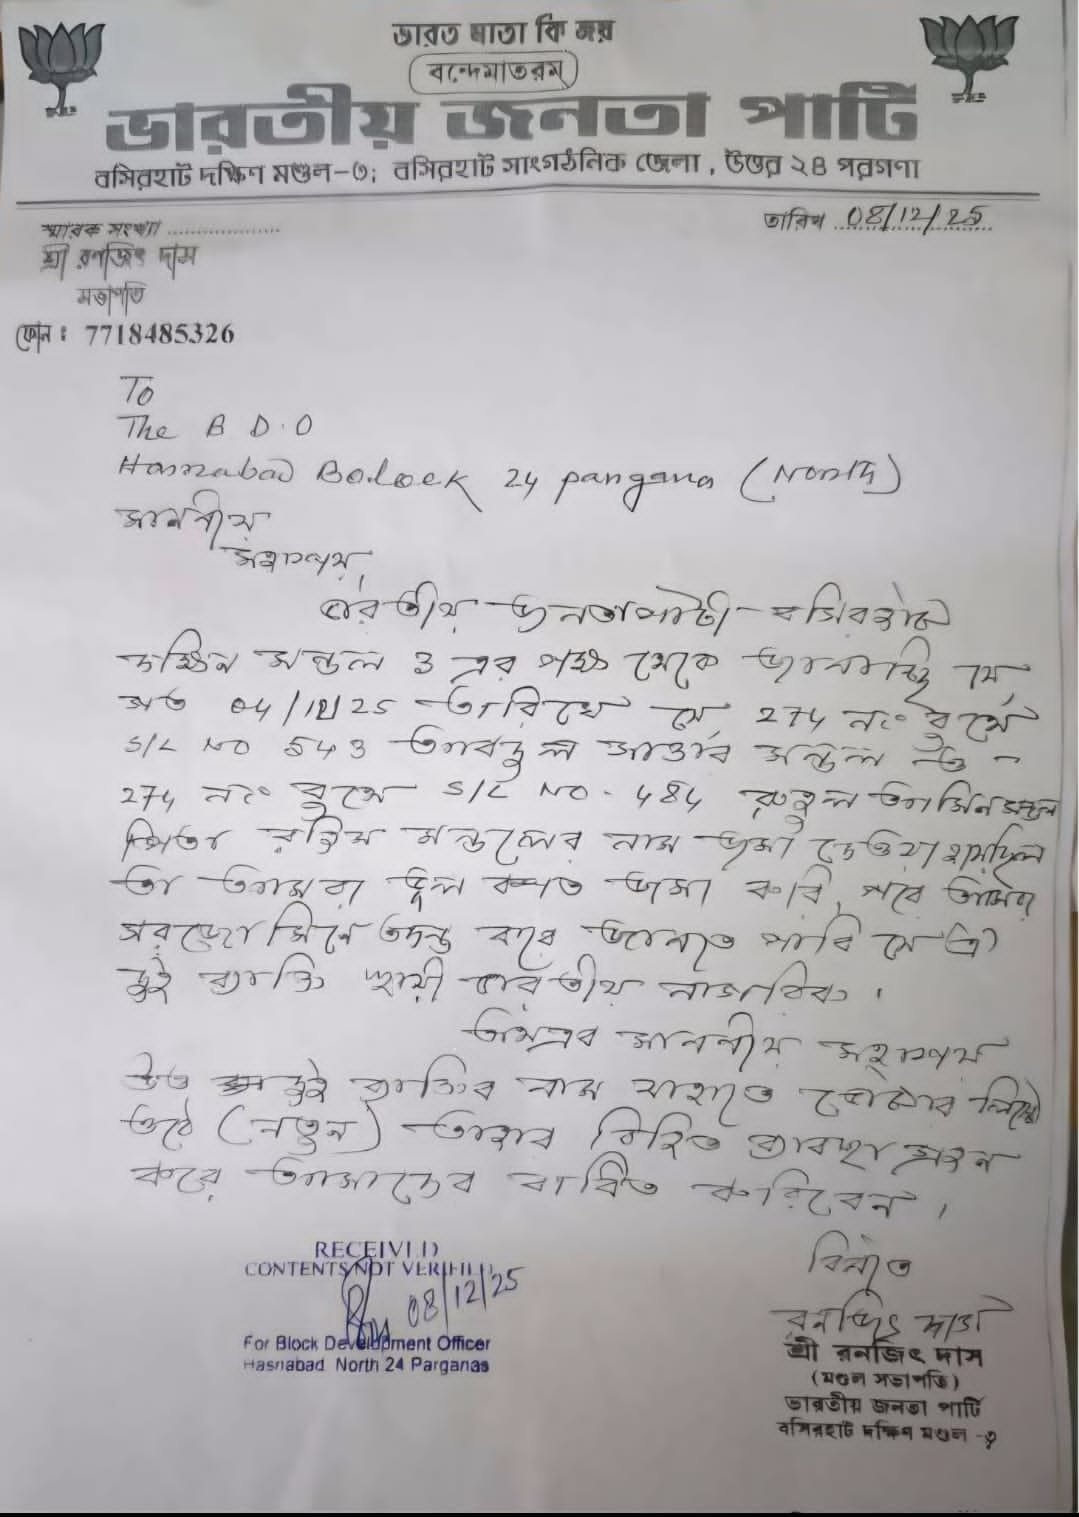 ভারত মাতা কি জয়
বন্দেমাতরম্
ভারতীয় জনতা পার্টি
বসিরহাট দক্ষিণ মণ্ডল-৩; বসিরহাট সাংগঠনিক জেলা, উত্তর ২৪ পরগণা
স্মারক সংখ্যা ....................
তারিখ 08/12/25
শ্রী রণজিৎ দাস
সভাপতি
ফোন : 7718485326
To
The B D.O
Hasnabad Bolock 24 pangana (North)
মাননীয়
মহাশয়,
ভারতীয় জনতাপার্টী বসিরহাট
দক্ষিন মন্ডল 3 এর পক্ষ থেকে জানাচ্ছি যে,
গত 04/12/25 তারিখে যে, 274 নং বুথে
S/L NO 543 আবদুল সাত্তার মন্ডল ও
274 নং বুথে S/L NO. 484 রুহুল আমিন মন্ডল
পিতা রহিম মন্ডলের নাম জমা দেওয়া হয়েছিল
তা আমরা ভুল বশত জমা করি, পরে আমরা
সরজোমিনে তদন্ত করে জানতে পারি যে ঐ
দুই ব্যাক্তি স্থায়ী ভারতীয় নাগরিক।
অতএব মাননীয় মহাশয়
উক্ত দুই ব্যাক্তির নাম যাহাতে ভোটার লিষ্টে
ওঠে (নতুন) তাহার বিহিত ব্যাবস্থা গ্রহন
করে আমাদের বাধিত করিবেন।
বিনীত
রনজিৎ দাস
শ্রী রনজিৎ দাস
(মণ্ডল সভাপতি)
ভারতীয় জনতা পার্টি
বসিরহাট দক্ষিণ মণ্ডল -৩
RECEIVED
CONTENTS NOT VERIFIED
08/12/25
For Block Development Officer
Hasnabad North 24 Parganas